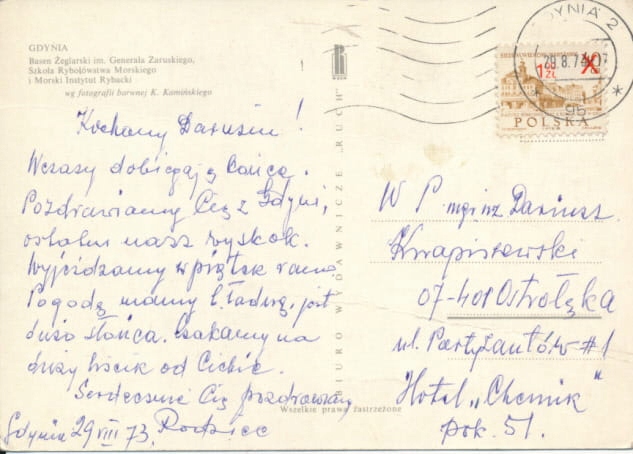 GDYNIA
Basen Żeglarski im. Generała Zaruskiego,
Szkoła Rybołówstwa Morskiego
i Morski Instytut Rybacki
wg fotografii barwnej K. Kamińskiego
Kochany Darusiu!
Wczasy dobiegają końca.
Pozdrawiamy Cię z Gdyni,
ostatni nasz wyskok.
Wyjeżdżamy w piątek rano.
Pogodę mamy b. ładną, jest
dużo słońca. Czekamy na
duży liścik od Ciebie.
Serdecznie Cię pozdrawiamy
Rodzice
Gdynia 29 VIII 73.
BIURO WYDAWNICZE „RUCH”
Wszelkie prawa zastrzeżone
GDYNIA 2
29.8.73
95
1 zł
40
POLSKA
W P. mgr inż Dariusz
Kwapiszewski
07-401 Ostrołęka
ul. Partyzantów #1
Hotel „Chemik”
pok. 51.